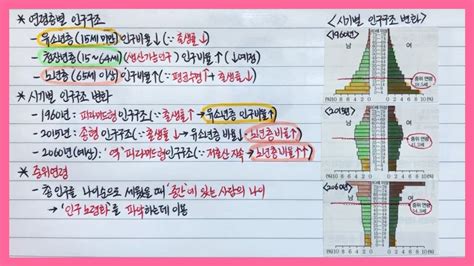 * 연령층별 인구구조
- 유소년층(15세 미만) 인구비율↓(∵출생률↓)
- 청장년층(15~64세)(생산가능인구) 인구비율↑(↓예정)
- 노년층(65세 이상) 인구비율↑(∵평균수명↑ + 출생률↓)
* 시기별 인구구조 변화
- 1960년: 피라미드형 인구구조(∵출생률↑→유소년층 인구비율↑)
- 2015년: 종형 인구구조(∵출생률↓→유소년층 비율↓ 노년층 비율↑)
- 2060년(예상): '역'피라미드형 인구구조(∵저출산 지속→노년층 비율↑↑)
* 중위연령
- 총 인구를 나이순으로 세웠을 때 '중간'에 있는 사람의 나이
→ '인구 노령화'를 파악하는데 이용
<시기별 인구구조 변화>
(1960년)
남 여
중위 연령
(%)10 8 6 4 2 0 0 2 4 6 8 10(%)
(2015년)
남 여
중위 연령
(%)10 8 6 4 2 0 0 2 4 6 8 10(%)
(2060년)
남 여
중위 연령
(%)10 8 6 4 2 0 0 2 4 6 8 10(%)